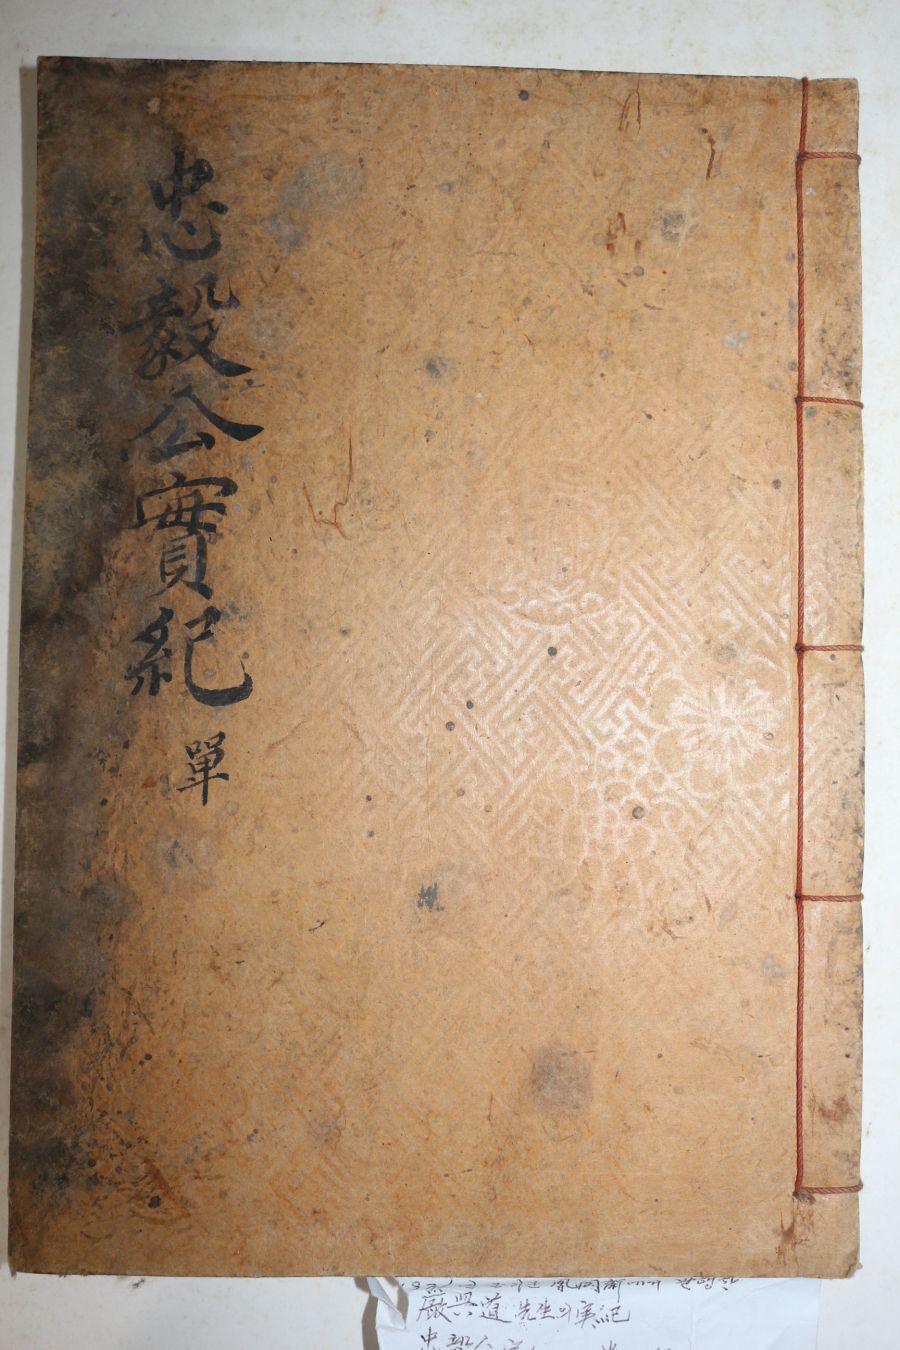 忠毅公實紀 單
嚴興道 先生의 実紀
忠毅公